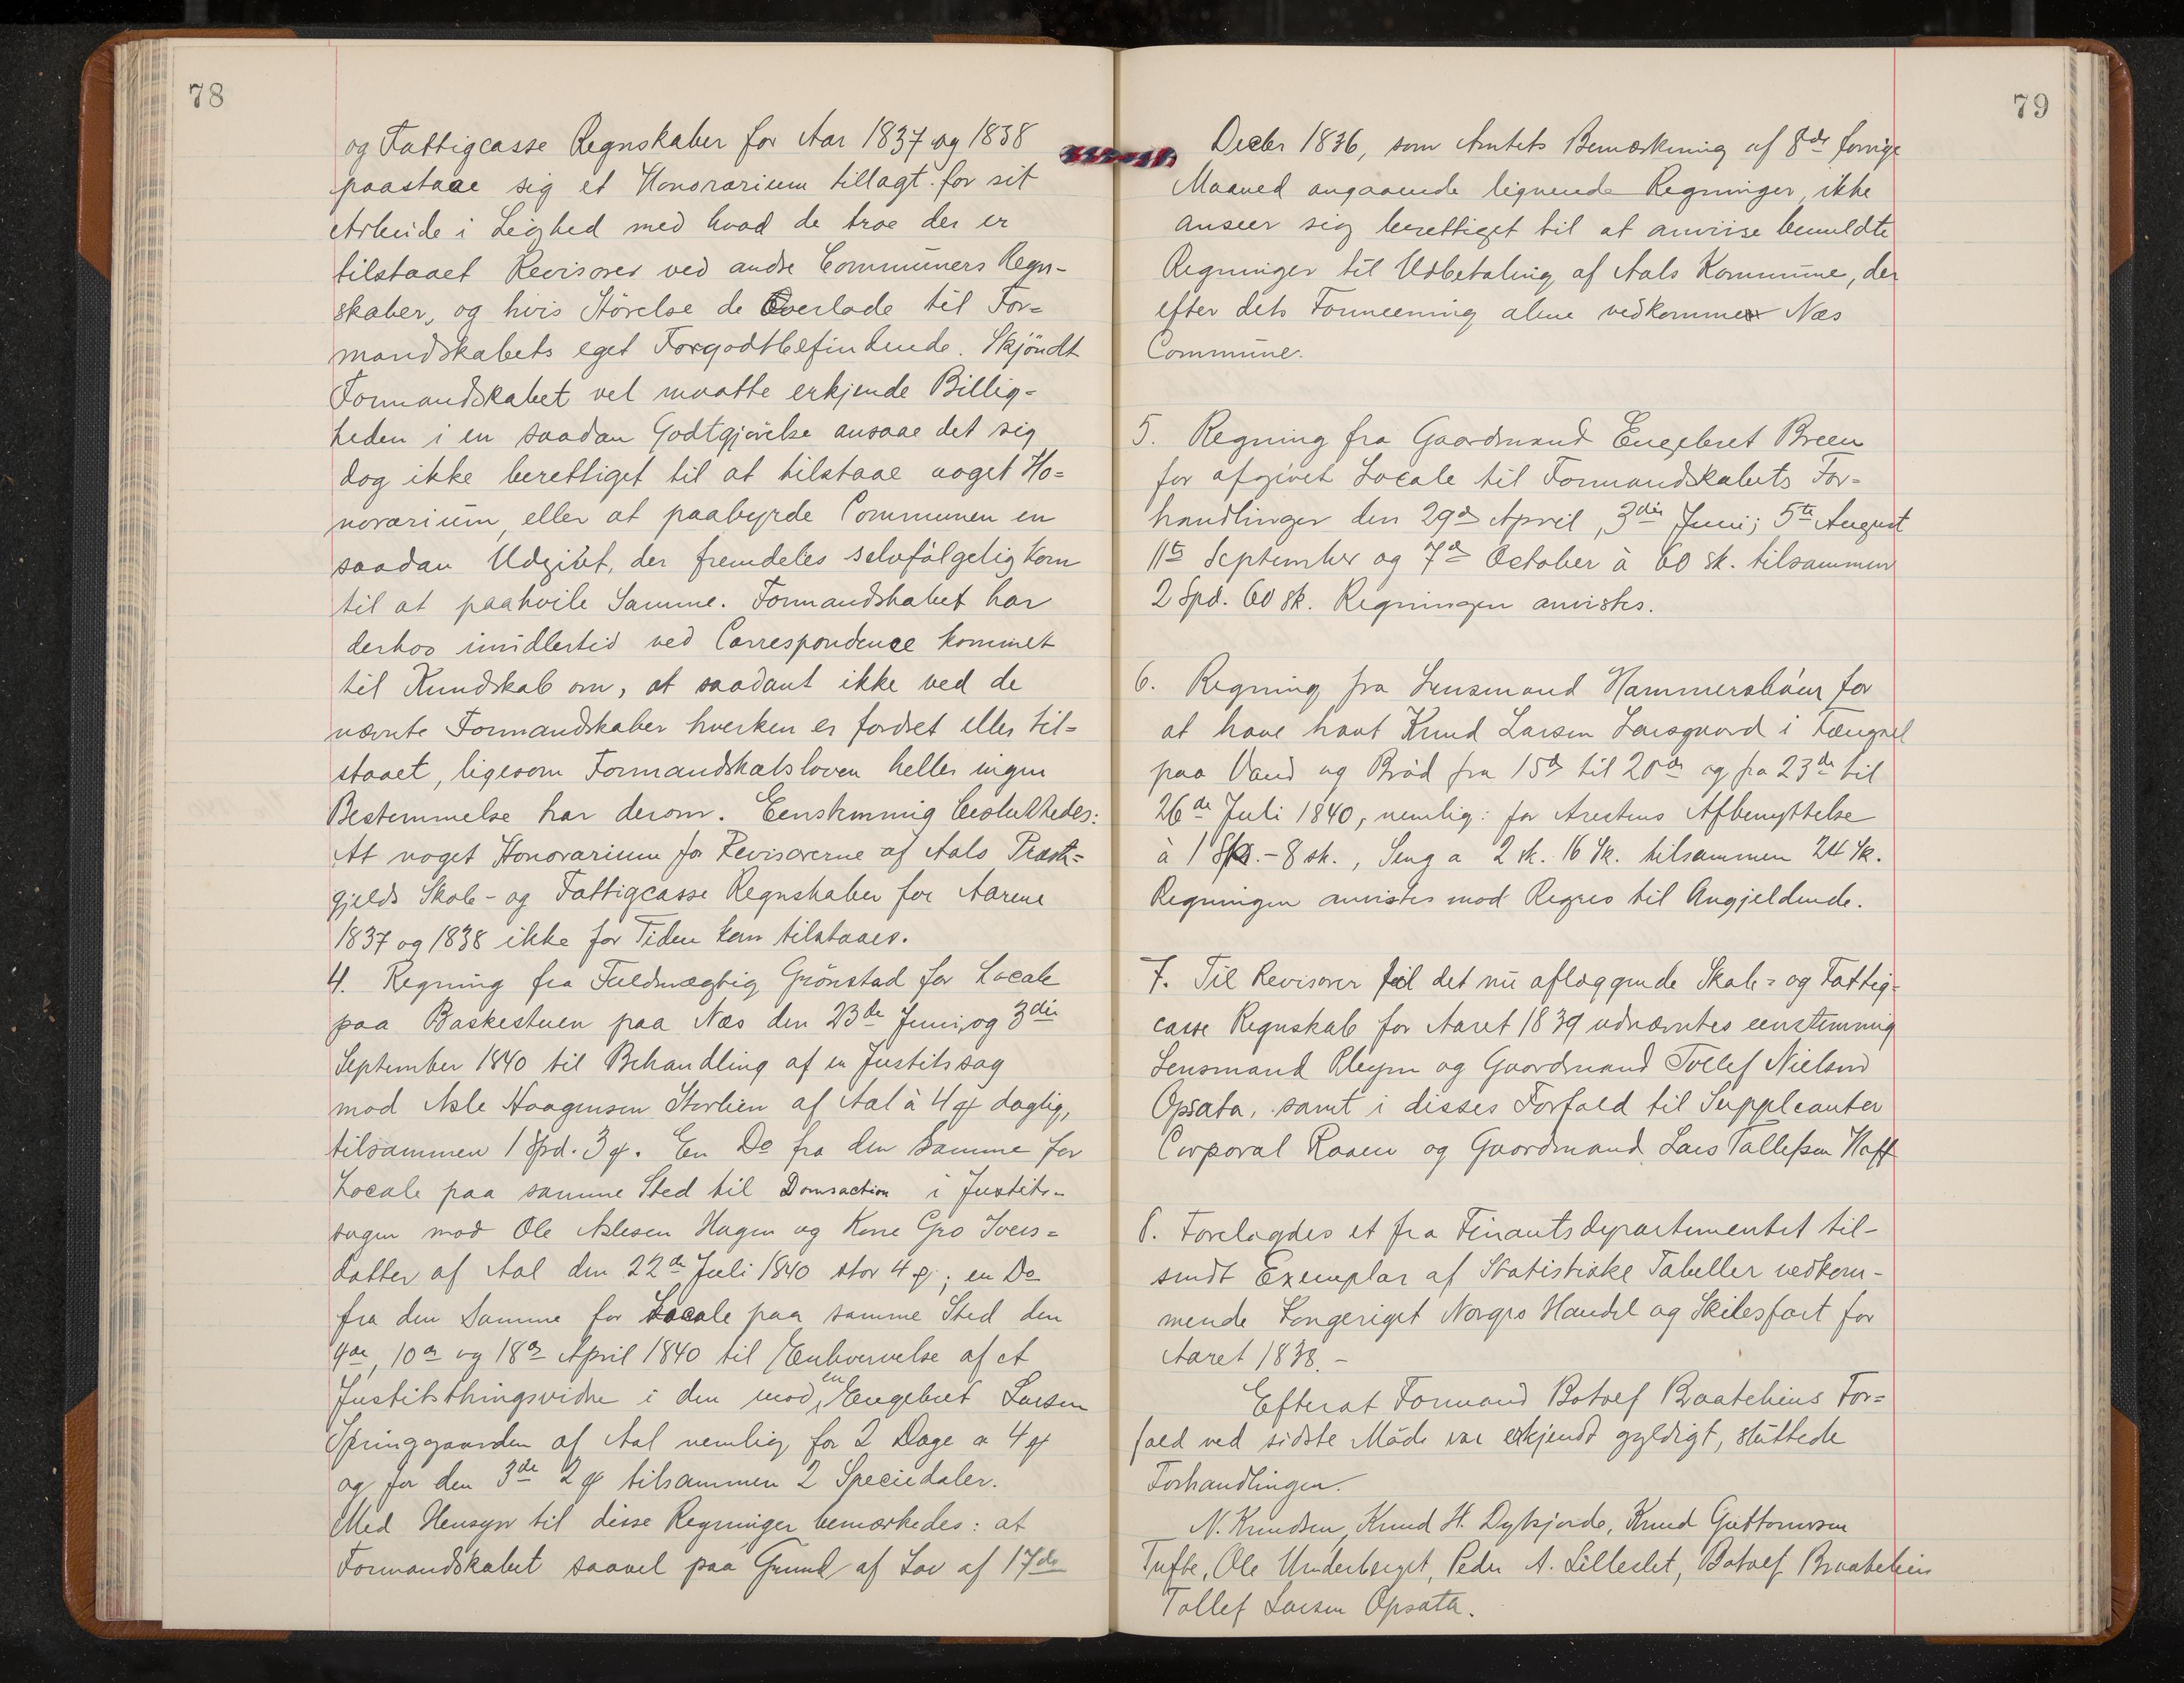 78
og Fattigcasse Regnskaber for Aar 1837 og 1838
paastaae sig et Honorarium tillagt for sit
Arbeide i Lighed med hvad de troe der er
tilstaaet Revisorer ved andre Communers Regn-
skaber, og hvis Störelse de Overlade til For=
mandskabets eget Forgodtbefindende. Skjöndt
Formandskabet vel maatte erkjende Billig=
heden i en saadan Godtgjörelse ansaae det sig
dog ikke berettiget til at tilstaae noget Ho=
norarium, eller at paabyrde Communen en
saadan Udgivt, der fremdeles selvfölgelig kom
til at paahvile Samme. Formandskabet har
derhos imidlertid ved Correspondence kommet
til Kundskab om, at saadant ikke ved de
nævnte Formandskaber hverken er fordret eller til=
staaet, ligesom Formandskabsloven heller ingen
Bestemmelse har derom. Eenstemmig besluttedes:
At noget Honorarium for Revisorerne af Aals Præste=
gjelds Skole- og Fattigcasse Regnskaber for Aarene
1837 og 1838 ikke for Tiden kan tilstaaes.
4. Regning fra Fuldmægtig Grönstad for Locale
paa Baskestuen paa Næs den 23de Juni, og 3die
September 1840 til Behandling af en Justitssag
mod Asle Haagensen Storlien af Aal à 4 ₰ daglig,
tilsammen 1 Spd. 3 ₰. En Do fra den Samme for
Locale paa samme Sted til Domsaction i Justits-
sagen mod Ole Aslesen Hagen og Kone Gro Ivers=
datter af Aal den 22de Juli 1840 stor 4 ₰; en Do
fra den Samme for Locale paa samme Sted den
9de, 10de og 18de April 1840 til Erhvervelse af et
Justitsthingsvidne i den mod en Engebret Larsen
Springgaarden af Aal nemlig for 2 Dage a 4 ₰
og for den 3de 2 ₰ tilsammen 2 Speciedaler.
Med Hensyn til disse Regninger bemærkedes: at
Formandskabet saavel paa Grund af Lov af 17de
79
Decbr 1836, som Amtets Bemærkning af 8de forrige
Maaned angaaende lignende Regninger, ikke
anseer sig berettiget til at anviise bemeldte
Regninger til Udbetaling af Aals Kommune, der
efter dets Formeening alene vedkommer Næs
Commune.
5. Regning fra Gaardmand Engebret Breen
for afgivet Locale til Formandskabets For=
handlinger den 29de April, 3die Juni; 5te August
11te September og 7de October à 60 sk. tilsammen
2 Spd. 60 sk. Regningen anvistes.
6. Regning fra Lensmand Hammersböen for
at have havt Knud Larsen Larsgaard i Fængsel
paa Vand og Bröd fra 15de til 20de og fra 23de til
26de Juli 1840, nemlig: for Arestens Afbenyttelse
à 1 Sk. - 8 sk., Seng a 2 sk. 16 Sk. tilsammen 24 Sk.
Regningen anvistes mod Regres til Angjeldende.
7. Til Revisorer til det nu aflæggende Skole= og Fattig=
casse Regnskab for Aaret 1839 udnævntes eenstemmig
Lensmand Pleym og Gaardmand Tollef Nielsen
Opsata, samt i disses Forfald til Suppleanter
Corporal Raaen og Gaardmand Lars Tollefsen Hoff
8. Forelagdes et fra Finantsdepartementet til-
sendt Exemplar af Statistiske Tabeller vedkom-
mende Kongeriget Norges Handel og Skibsfart for
Aaret 1838. -
Efterat Formand Botolf Braatehins For=
fald ved sidste Möde var erkjendt gyldigt, sluttede
Forhandlingen.
N. Knudsen, Knud H. Dyksjorde, Knud Guttormsen
Tufte, Ole Underberget, Peder A. Lilleslet, Botolf Braatehein
Tollef Larsen Opsata.